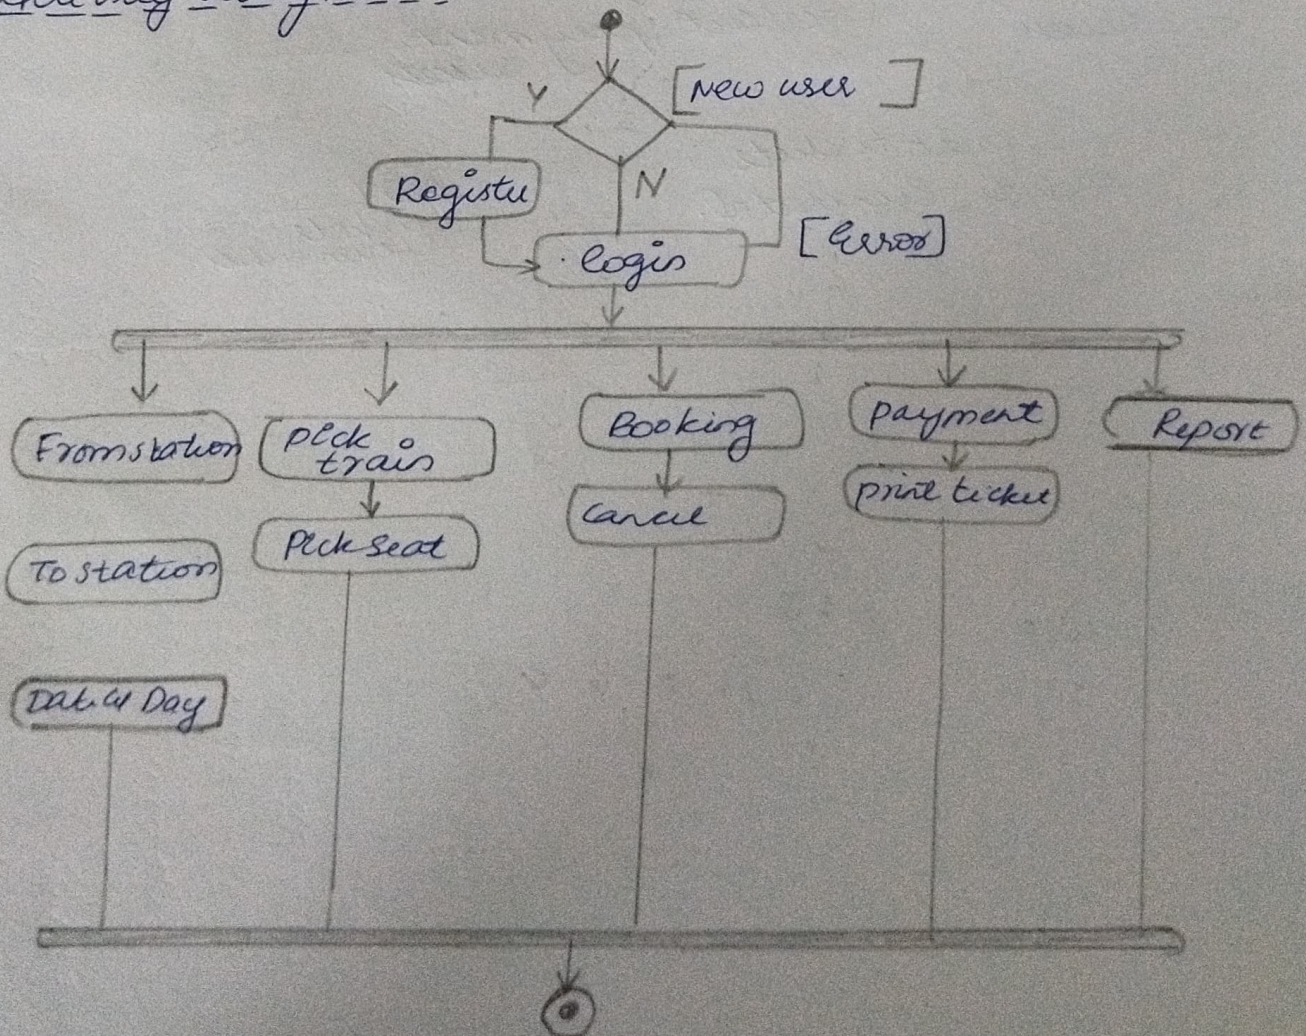 Y
[New user ]
Register
N
[Error]
login
From station
pick
train
Booking
payment
Report
Cancel
print ticket
Pick Seat
To station
Day